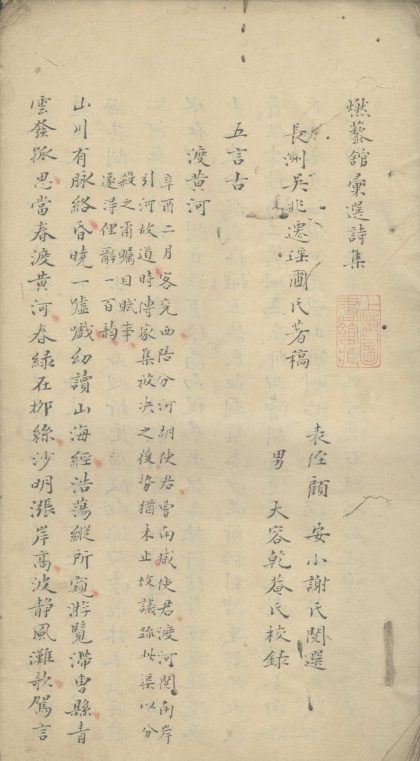 燃藜館彙選詩集
上海圖書館藏
長洲吳兆遷瑤圃氏著稿
表侄顧 安小謝氏閱選
男 大容乾菴氏校錄
五言古
渡黃河
辛酉二月客兖西陪分河朝使君曹南臧使君渡河閱南岸
引河故道時傅家集被決之後勢猶未止故議疏此渠以分
殺之甫囑日賦事
遂淂俚辭一百韵
山川有脉絡昏曉一嘘戲幼讀山海經浩蕩縱所窺游覽滯曹縣青
雲發孤思當春渡黃河春綠在柳絲沙明漲岸高波静風灘歌駕言